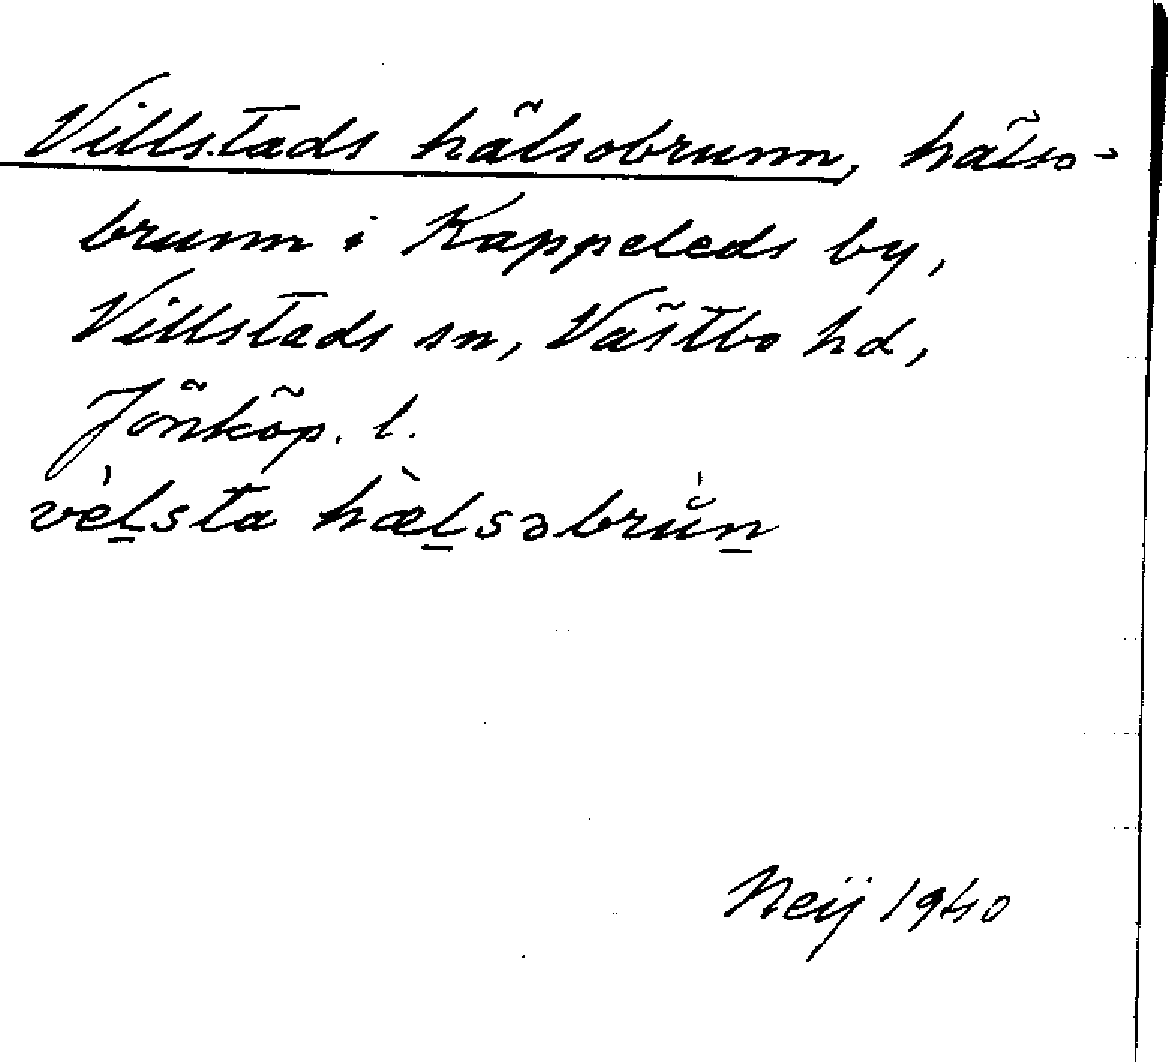 Villstads hälsobrunn, hälso-
brunn i Kappeleds by,
Villstads sn, Västbo hd,
Jönköp. l.
vèl̲sta hæ̀l̲səbrŭ̍n̲
Neij 1940